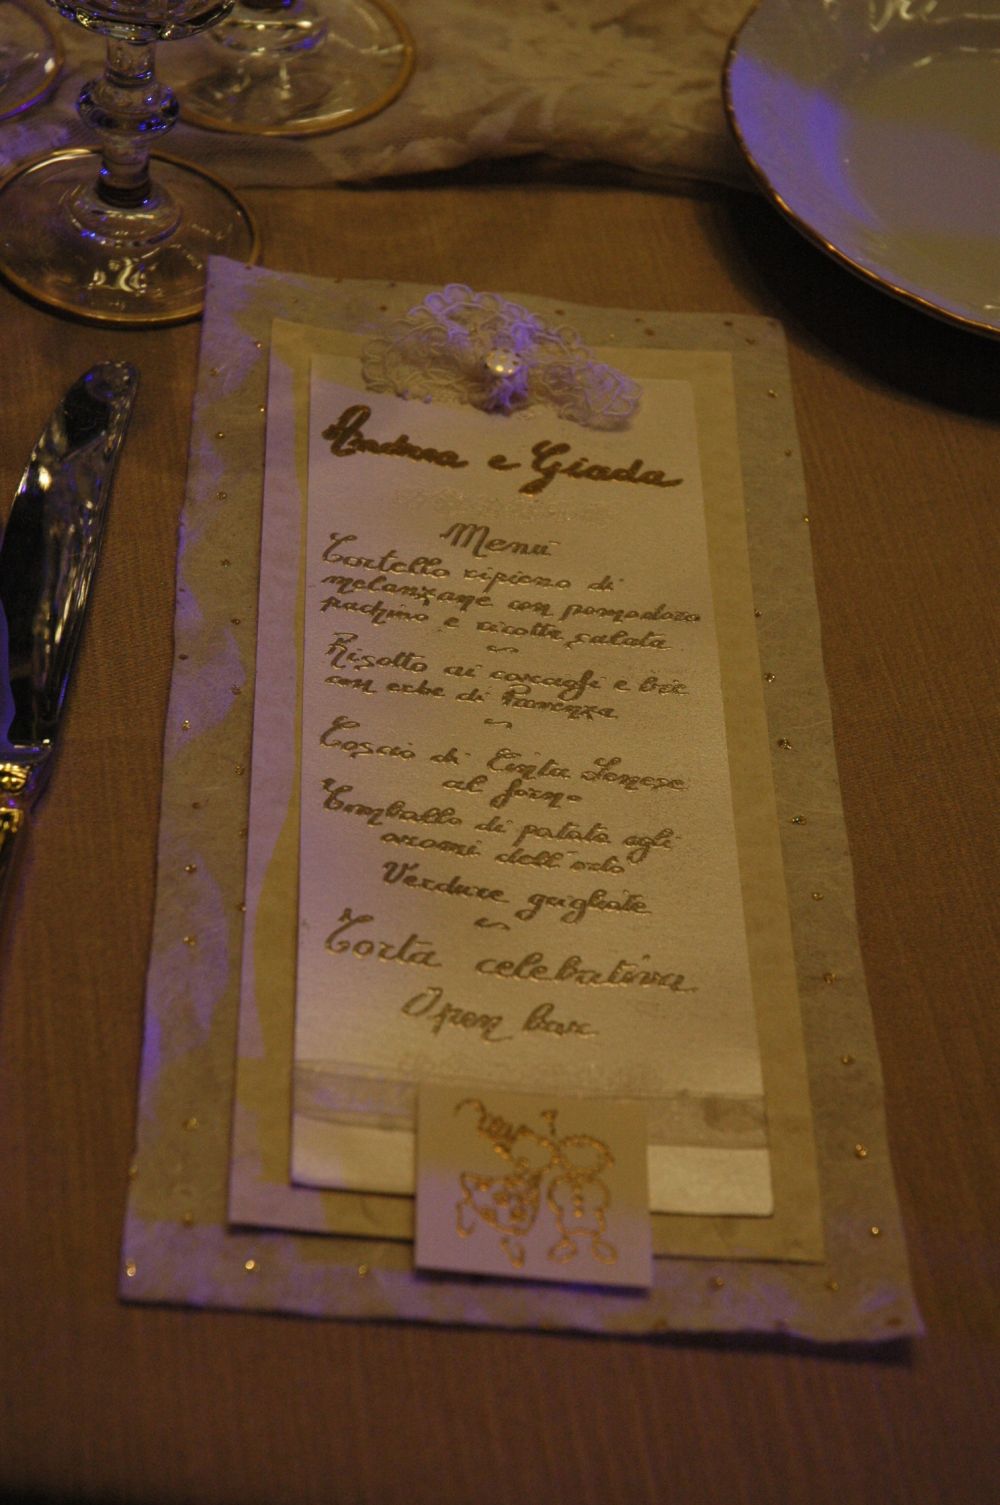 Andrea e Giada
Menù
Tortello ripieno di
melanzane con pomodoro
pachino e ricotta salata
Risotto ai asparagi e brie
con erbe di Provenza
Coscio di Cinta Senese
al forno
Timballo di patate agli
aromi dell'orto
Verdure grigliate
Torta celebrativa
Open bar